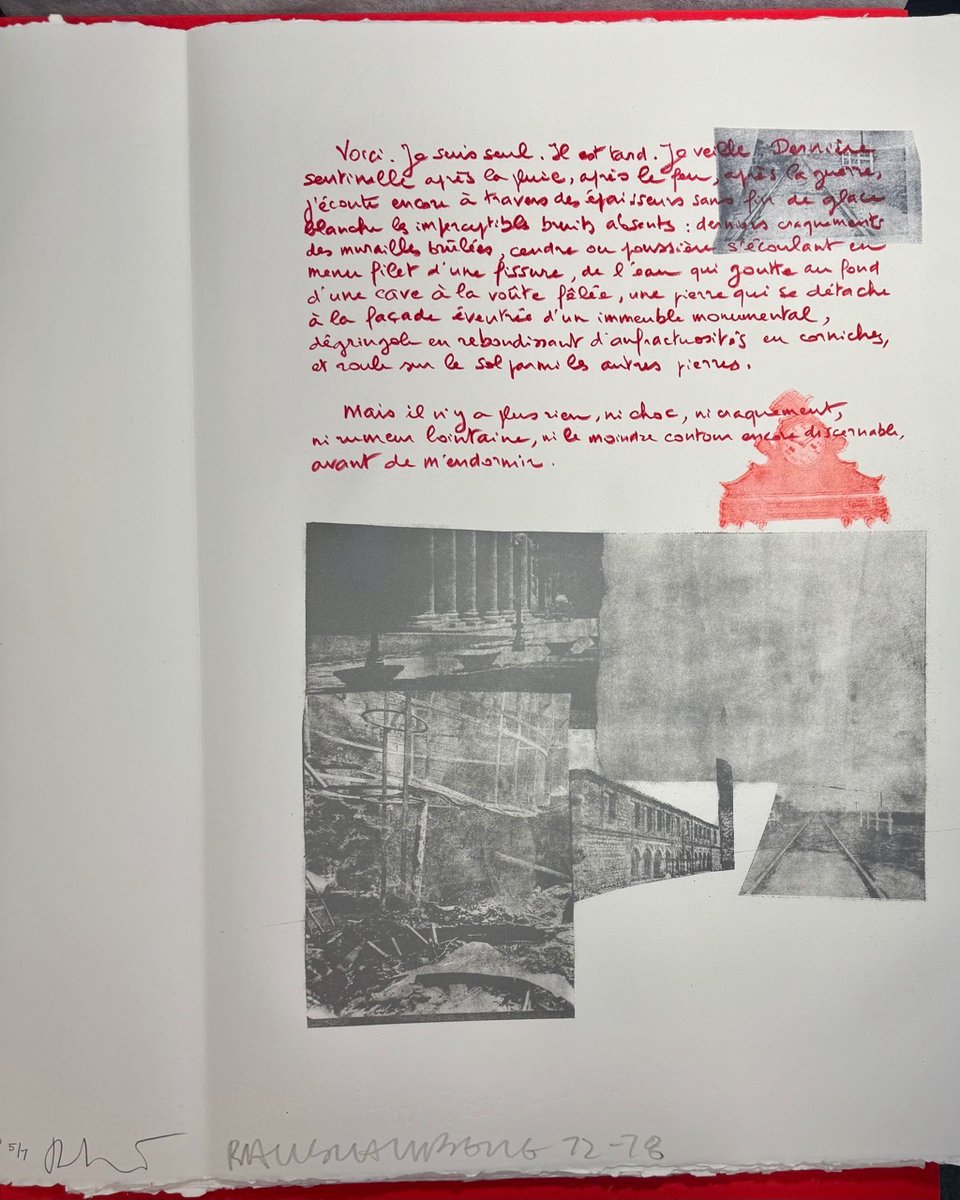 Voici. Je suis seul. Il est tard. Je veille. Dernière
sentinelle après la pluie, après le feu, après la guerre,
j'écoute encore à travers des épaisseurs sans fin de glace
blanche les imperceptibles bruits absents : derniers craquements
des murailles brûlées, cendre ou poussière s'écoulant en
menu filet d'une fissure, de l'eau qui goutte au fond
d'une cave à la voûte fêlée, une pierre qui se détache
à la façade éventrée d'un immeuble monumental,
dégringole en rebondissant d'anfractuosités en corniches,
et roule sur le sol parmi les autres pierres.
Mais il n'y a plus rien, ni choc, ni craquement,
ni rumeur lointaine, ni le moindre contour encore discernable,
avant de m'endormir.
5/7
RAUSCHENBERG 72-78